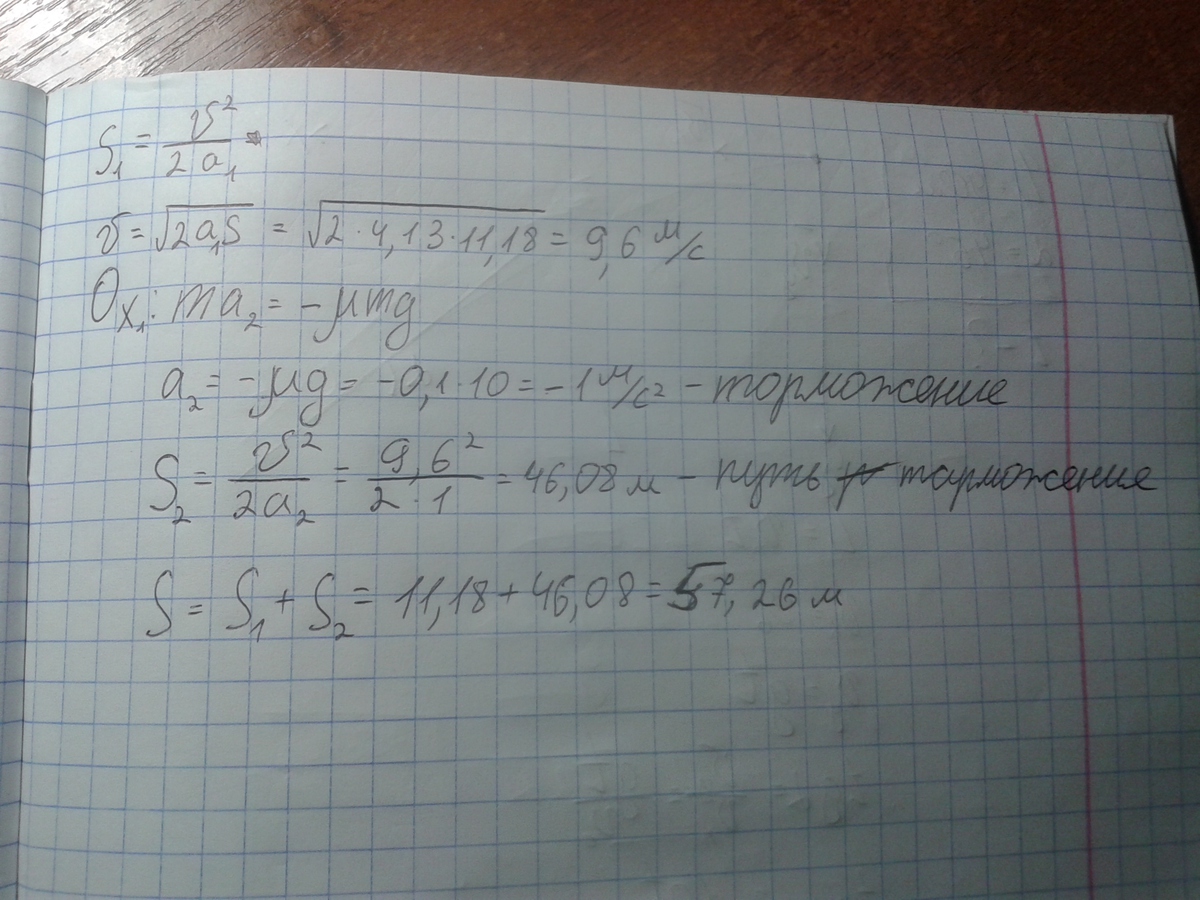 S₁ = v²/2a₁
v = √2a₁S = √2·4,13·11,18 = 9,6 м/с
Ox₁: ma₂ = -μmg
a₂ = -μg = -0,1·10 = -1 м/с² - торможение
S₂ = v²/2a₂ = 9,6²/2·1 = 46,08 м - путь торможение
S = S₁ + S₂ = 11,18 + 46,08 = 57,26 м